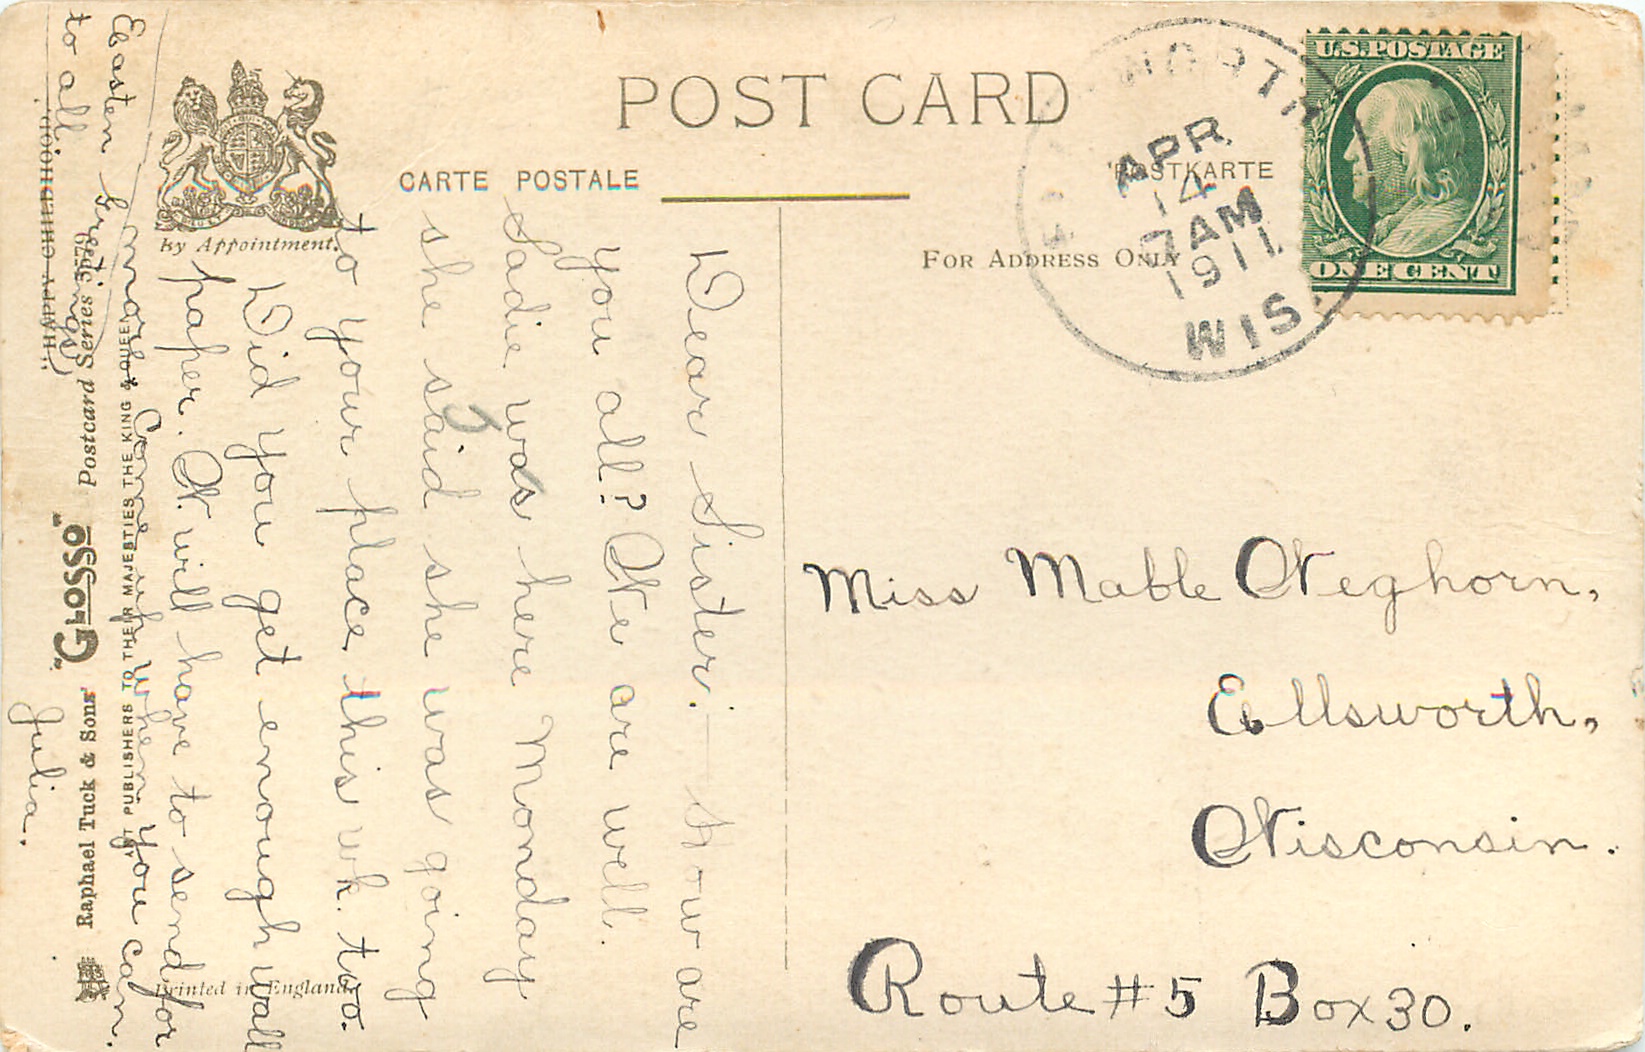 POST CARD
CARTE POSTALE
POSTKARTE
FOR ADDRESS ONLY
By Appointment.
U.S. POSTAGE
ONE CENT
WORTH
APR
14
7 AM
1911
WIS.
Dear Sister:— how are
you all? We are well.
Sadie was here Monday
she said she was going
to your place this wk. too.
Did you get enough wall
paper. W. will have to send for
more. Come up when you can.
Easter Greetings
to all.
Julia.
Miss Mable Weghorn,
Ellsworth,
Wisconsin.
Route #5 Box 30.
ART PUBLISHERS TO THEIR MAJESTIES THE KING & QUEEN
Raphael Tuck & Sons' "GLOSSO" Postcard Series
"HAPPY CHILDHOOD."
Printed in England.